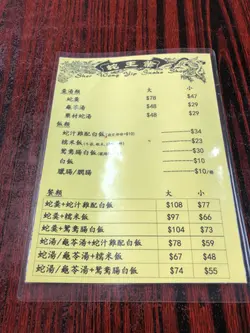 蛇王業
Sher Wong Yip Snake Shop
羹湯類 大 小
蛇羹 $78 $47
龜苓湯 $48 $29
藥材蛇湯 $48 $29
飯類
蛇汁雞配白飯 $34
糯米飯 $23
鴛鴦腸白飯 $30
白飯 $10
臘腸/膶腸 $10/條
餐類 大 小
蛇羹+蛇汁雞配白飯 $108 $77
蛇羹+糯米飯 $97 $66
蛇羹+鴛鴦腸白飯 $104 $73
蛇湯/龜苓湯+蛇汁雞配白飯 $78 $59
蛇湯/龜苓湯+糯米飯 $67 $48
蛇湯/龜苓湯+鴛鴦腸白飯 $74 $55